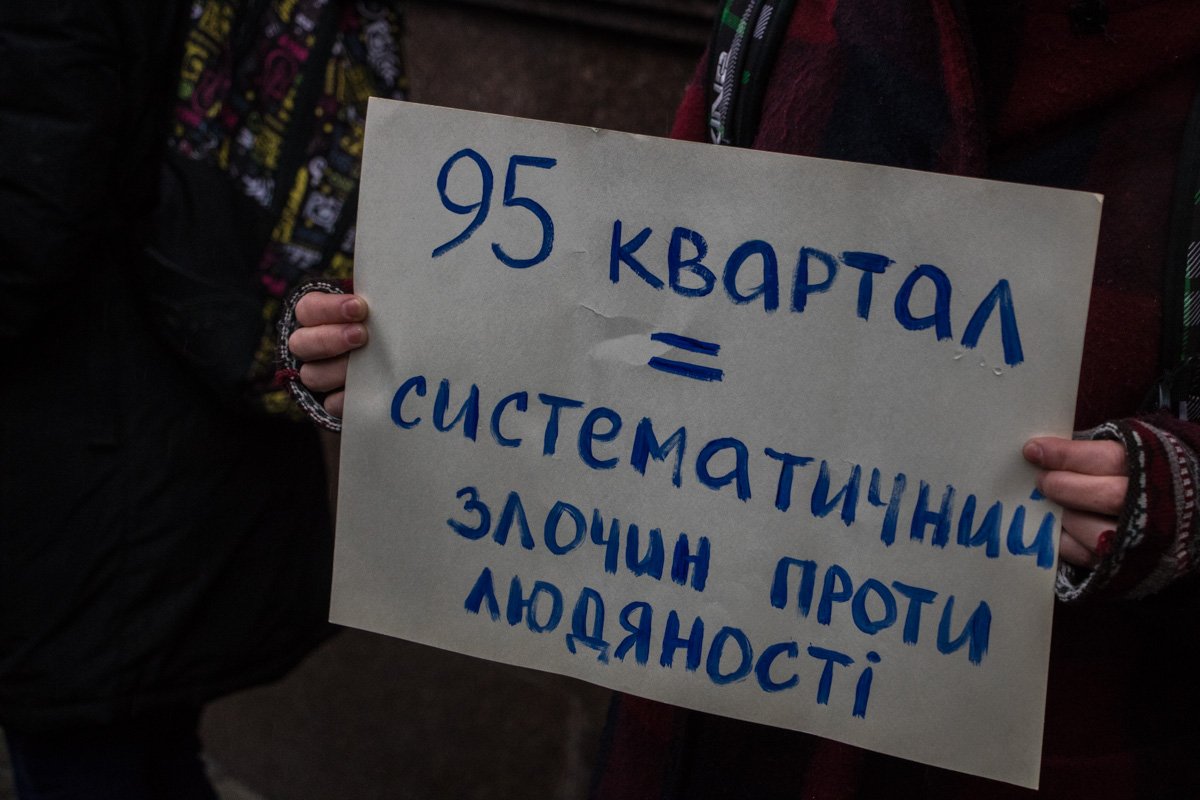 95 квартал
=
систематичний
злочин проти
людяності